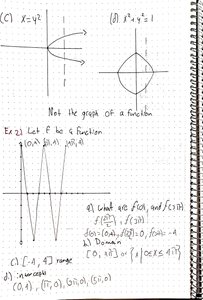 (C) x=y²
(d) x²+y²=1
Not the graph of a function
Ex 2) Let f be a function
(0,4) (2π,4) (4π,4)
a) what are f(0), and f(3π)
f(3π/2), f(3π)
f(0)=(0,4), f(3π/2)=0, f(3π)=-4
b) Domain
[0, 4π] or {x|0≤x≤4π}
c) [-4, 4] range
d) intercepts
(0,4), (π,0), (3π,0), (5π,0)